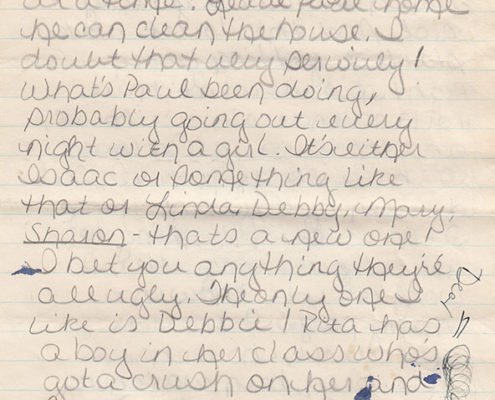 at a time. Leave Paul home
he can clean the house. I
doubt that very seriously!
What's Paul been doing,
probably going out every
night with a girl. It's either
Isaac or something like
that or Linda, Debby, Mary,
Sharon - thats a new one!
I bet you anything they're
all ugly. The only one I
like is Debbie! Rita has
a boy in her class who's
got a crush on her and